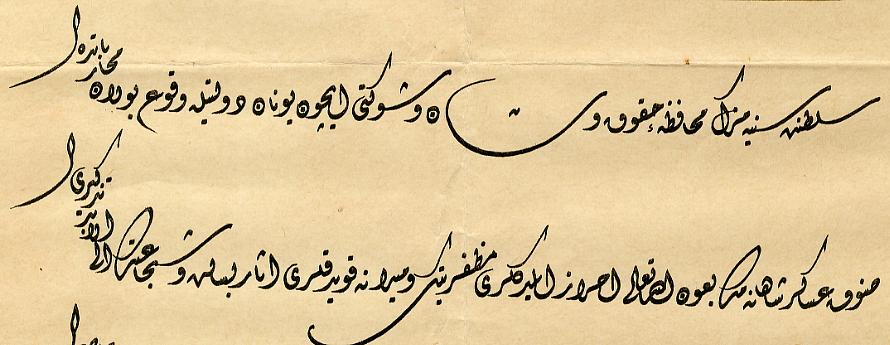 سلطنت سنیه مزك محافظهٔ حقوق و شان و شوكتی ایچون یونان دولتیله وقوع بولان محاربه ده
صنوف عساكر شاهانه مزك بعون الله تعالی احراز ایلدكلری مظفریتك و میدانه قویدقلری اثار بسالت و شجاعتك